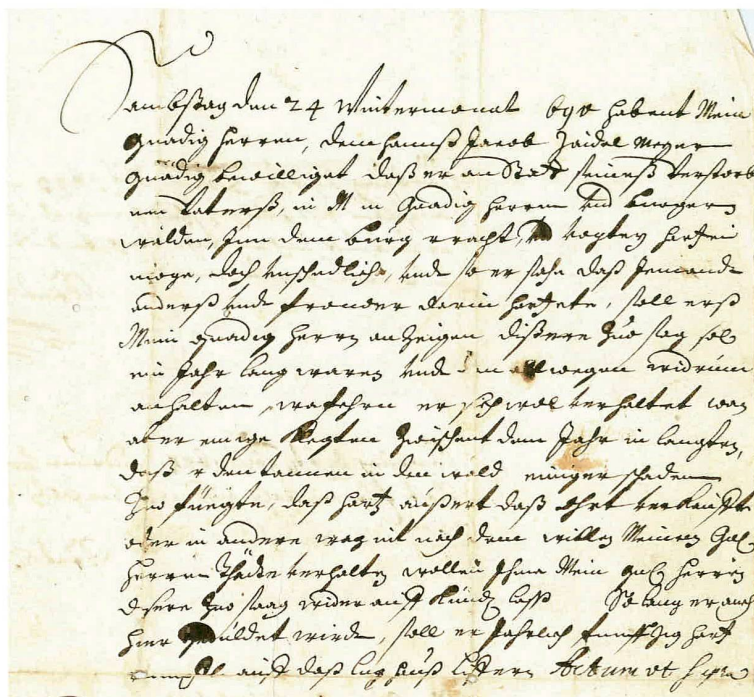 Sambstag den 24 Wintermonat 690 habent Mein
gnädig Herren, dem Hannß Jacob Zeidel Meyer
gnädig bewilliget daß er an Statt seineß verstorb
nen Vaterß, in M in Gnädig Herren und Burgern
wälden, Inn dem Burg rracht, vogtey hartzen
möge, doch unschedlich, unde so er sahe daß Jemande
anderß unde frömder darin hartzete, soll erß
Mein gnädig Herren anzeigen dißere Zuo sag sol
ein Jahr lang waren unde wegen widrum
anhalten, wafehrn er sich wol verhaltet wan
aber einige klegten zwüschent dem Jahr in langten,
daß er den tannen in den wald einiger schaden
Zuo füegte, daß hartz aussert daß ohrt verkaufte
oder in andere weg nit nach dem willen Meinen Gn
Herren verhalten wollen Ihme Mein gn Herren
disere Zuo saag wider auff künden lassen So lang er auch
hier geduldet wirdt, soll er Jahrlich fünffzig hartz
auff daß Züg Hauß liffern Actum ut supra